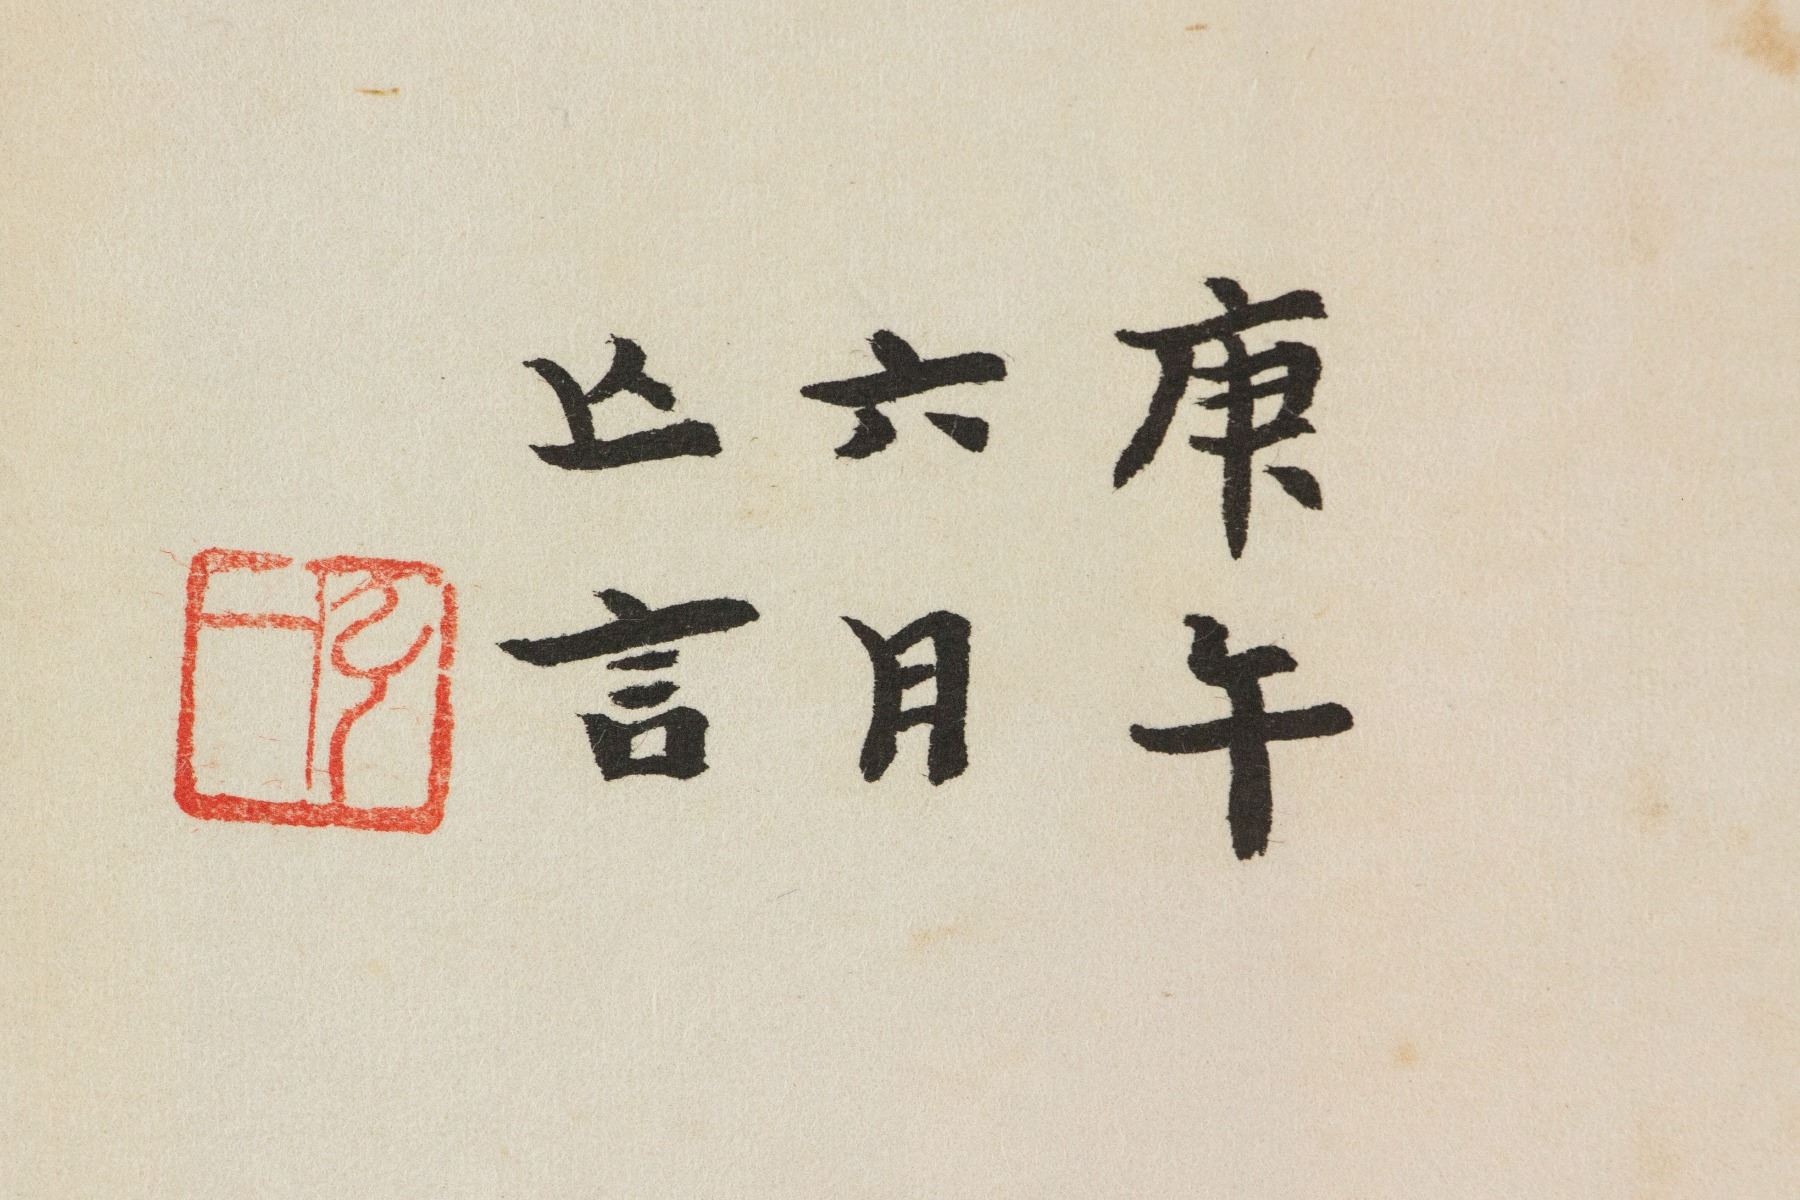 庚午
六月
言